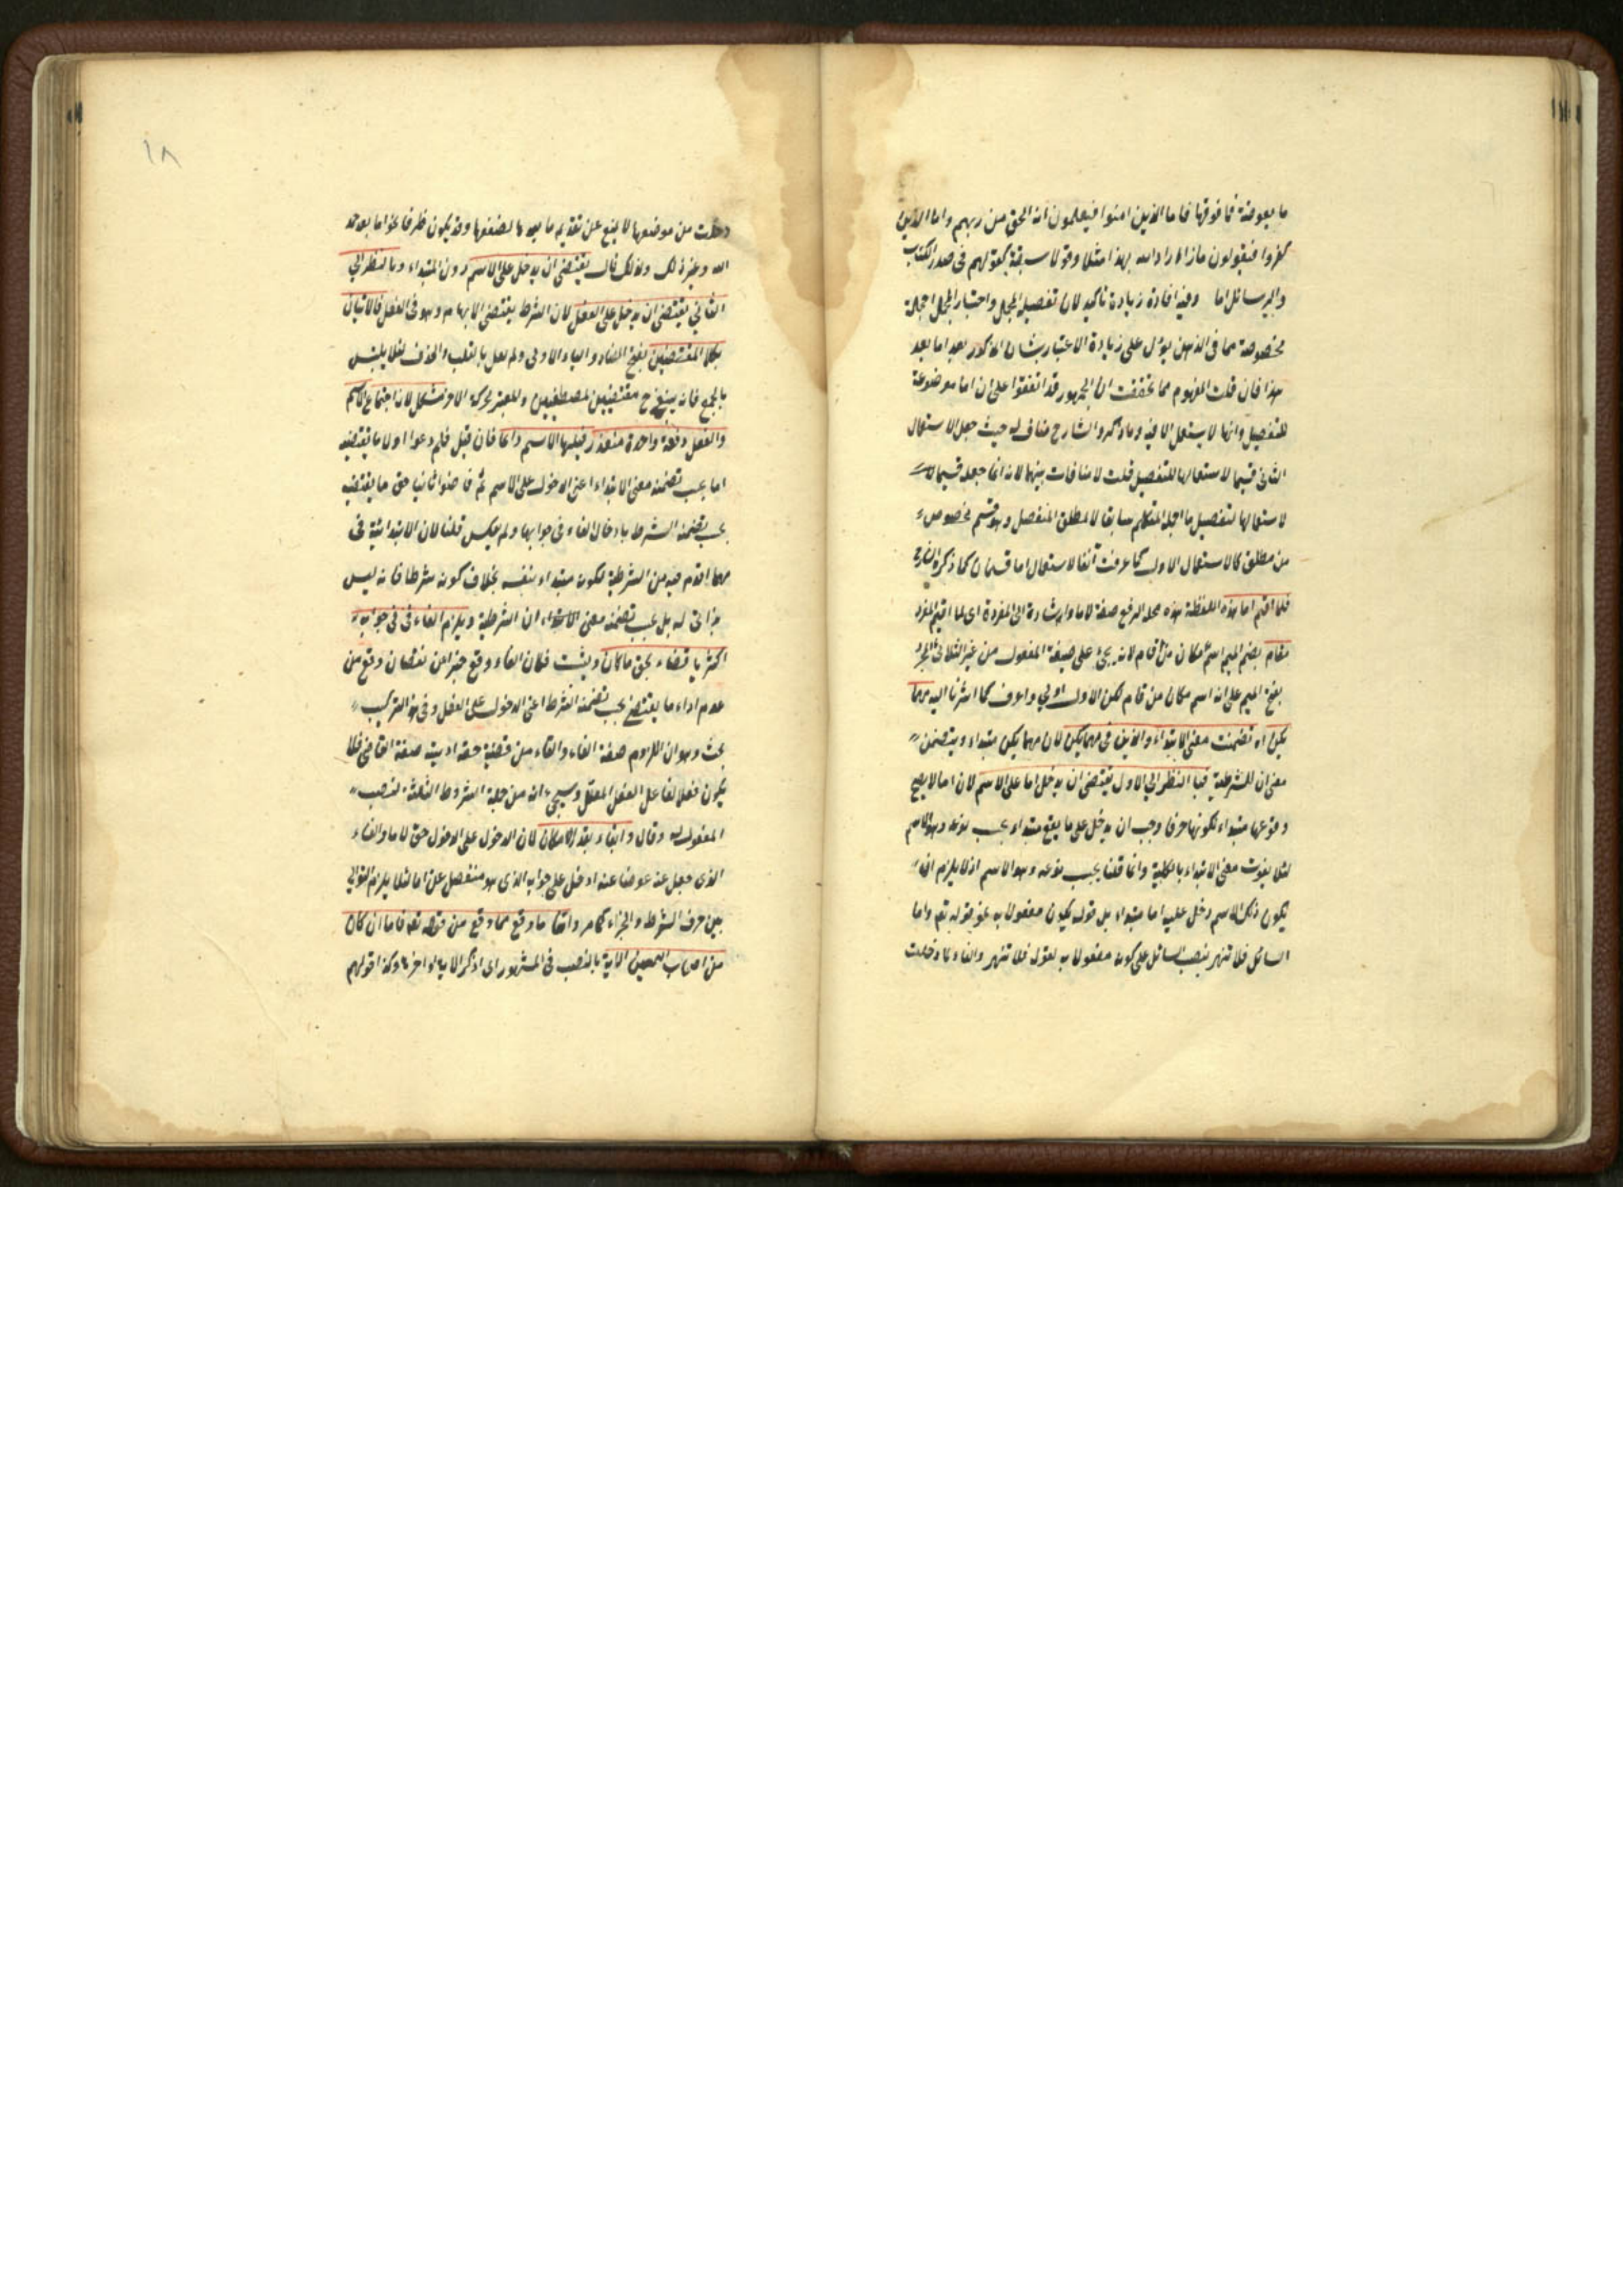 ما بعوضة فما فوقها فاما الذين امنوا فيعلمون انه الحق من ربهم واما الذين
كفروا فيقولون ماذا اراد الله بهذا مثلا وقولا سبقة كقولهم في صدر الكتب
والرسائل اما وفيه افادة زيادة تاكيد لان تفصيل المجمل واحتبار المجمل اجملة
مخصوصة مما في الذهن يدل على زيادة الاعتبار بشان المذكور بعد اما بعد
هذا فان قلت المفهوم مما تحققت ان الجمهور قد اتفقوا على ان اما موضوعة
للتفصيل وانها لا يستعمل الا فيه وما ذكره الشارح مناف له حيث جعل الاستعمال
الثاني قسيما لاستعمالها للتفصيل قلت لا منافات بينهما لانه انما جعله قسيما
لاستعمالها لتفصيل ما اجمله المتكلم سابقا لا لمطلق المتفصل وهو قسم مخصوص
من مطلق كالاستعمال الاول كما عرفت آنفا لاستعمال اما قسمان كما ذكره الشارح
فلما اقيم اما هذه اللفظة هذه محله الرفع صفة لاما واشارة الى المفردة اى لما اقيم المفرد
مقام بضم الميم اسم مكان من اقام لانه يجئ على صيغة المفعول من غير الثلاثي المجرد
بفتح الميم على انه اسم مكان من قام لكن الاول اولى واوف كما اشرنا اليه مهما
يكن اه تضمنت معنى الابتداء والذين في مهما يكن لان مهما يكن مبتداء ويتضمن
معنى ان للشرطية فبا النظر الي الاول يقتضى ان يدخل اما على الاسم لان اما لا يصح
وقوعها مبتداء لكونها حرفا وجب ان يدخل على ما يقع مبتداء بحسب نوعه وهو الاسم
لئلا يفوت معنى الابتداء بالكلية وانما قلنا بحسب نوعه وهو الاسم اذ لا يلزم ان
يكون ذلك الاسم دخل عليه اما مبتداء بل قوله يكون مفعولا به نحو قوله تع واما
السائل فلا تنهر بنصب السائل على كونه مفعولا به لقول فلا تنهر والفاء لما دخلت
دخلت من موضعها لا يمنع عن تقديم ما بعدها لضعفها وقد يكون ظرفا نحو اما بعد حمد
الله وغير ذلك ولذلك قال يقتضى ان يدخل على الاسم دون المبتداء وبالنظر الي
الثاني يقتضى ان يدخل على الفعل لان الشرط يقتضى الابهام وهو في الفعل فالاتيان
بكلا المقتضيين بفتح الضاد والياء الاولى ولم يعل بالقلب والحذف لئلا يلتبس
بالجمع فانه مقتضيين لمصطفين وللعبر بحركة الاخر مشكل لان اجتماع الاسم
والفعل دفعة واحدة متعذر فيلها الاسم دائما فان قيل فلم دعوا اولا ما يقتضيه
اما بحسب تضمنه معنى الابتداء اعنى الدخول على الاسم ثم قاضوا ثانيا حق ما يقتضيه
بحسب تضمنه الشرط بادخال الفاء في جوابها ولم يعكس قلنا لان الابتدائية في
مهما اقدم فيه من الشرطية لكونه مبتداء بنفسه بخلاف كونه شرطا فانه ليس
بذاتى له بل بحسب تضمنه معنى ان الشرطية ويلزم الفاء في جوابه
اكثريا قضاء بحق ماكان ويثبت فكان الفاء وقع جبرا عن نقصان وقع من
عدم اداء ما يقتضى بحسب تضمنه الشرط اعنى الدخول على الفعل وفي هذا التركيب
بحث وهو ان اللزوم صفة الفاء والقاء من قضية حقه اديته صفة القاضى فلا
يكون فعلا لفاعل الفعل المعلل وسيجئ انه من جملة الشروط الثلثة لنصب
المفعول له وقال وابقاء بقدر الامكان لان الدخول على الدخول حق لاما والفاء
الذى جعل عنه عوضا عنه ادخل على جوابه الذى هو منفصل عن اما لئلا يلزم التوالي
بين حرف الشرط والجزاء كما مر واما ما وقع مما وقع من قوله تع فاما ان كان
من اصحاب اليمين الآية بالنصب في المشهور اى اذكر الاية او اخرها وكذا قولهم
١٨